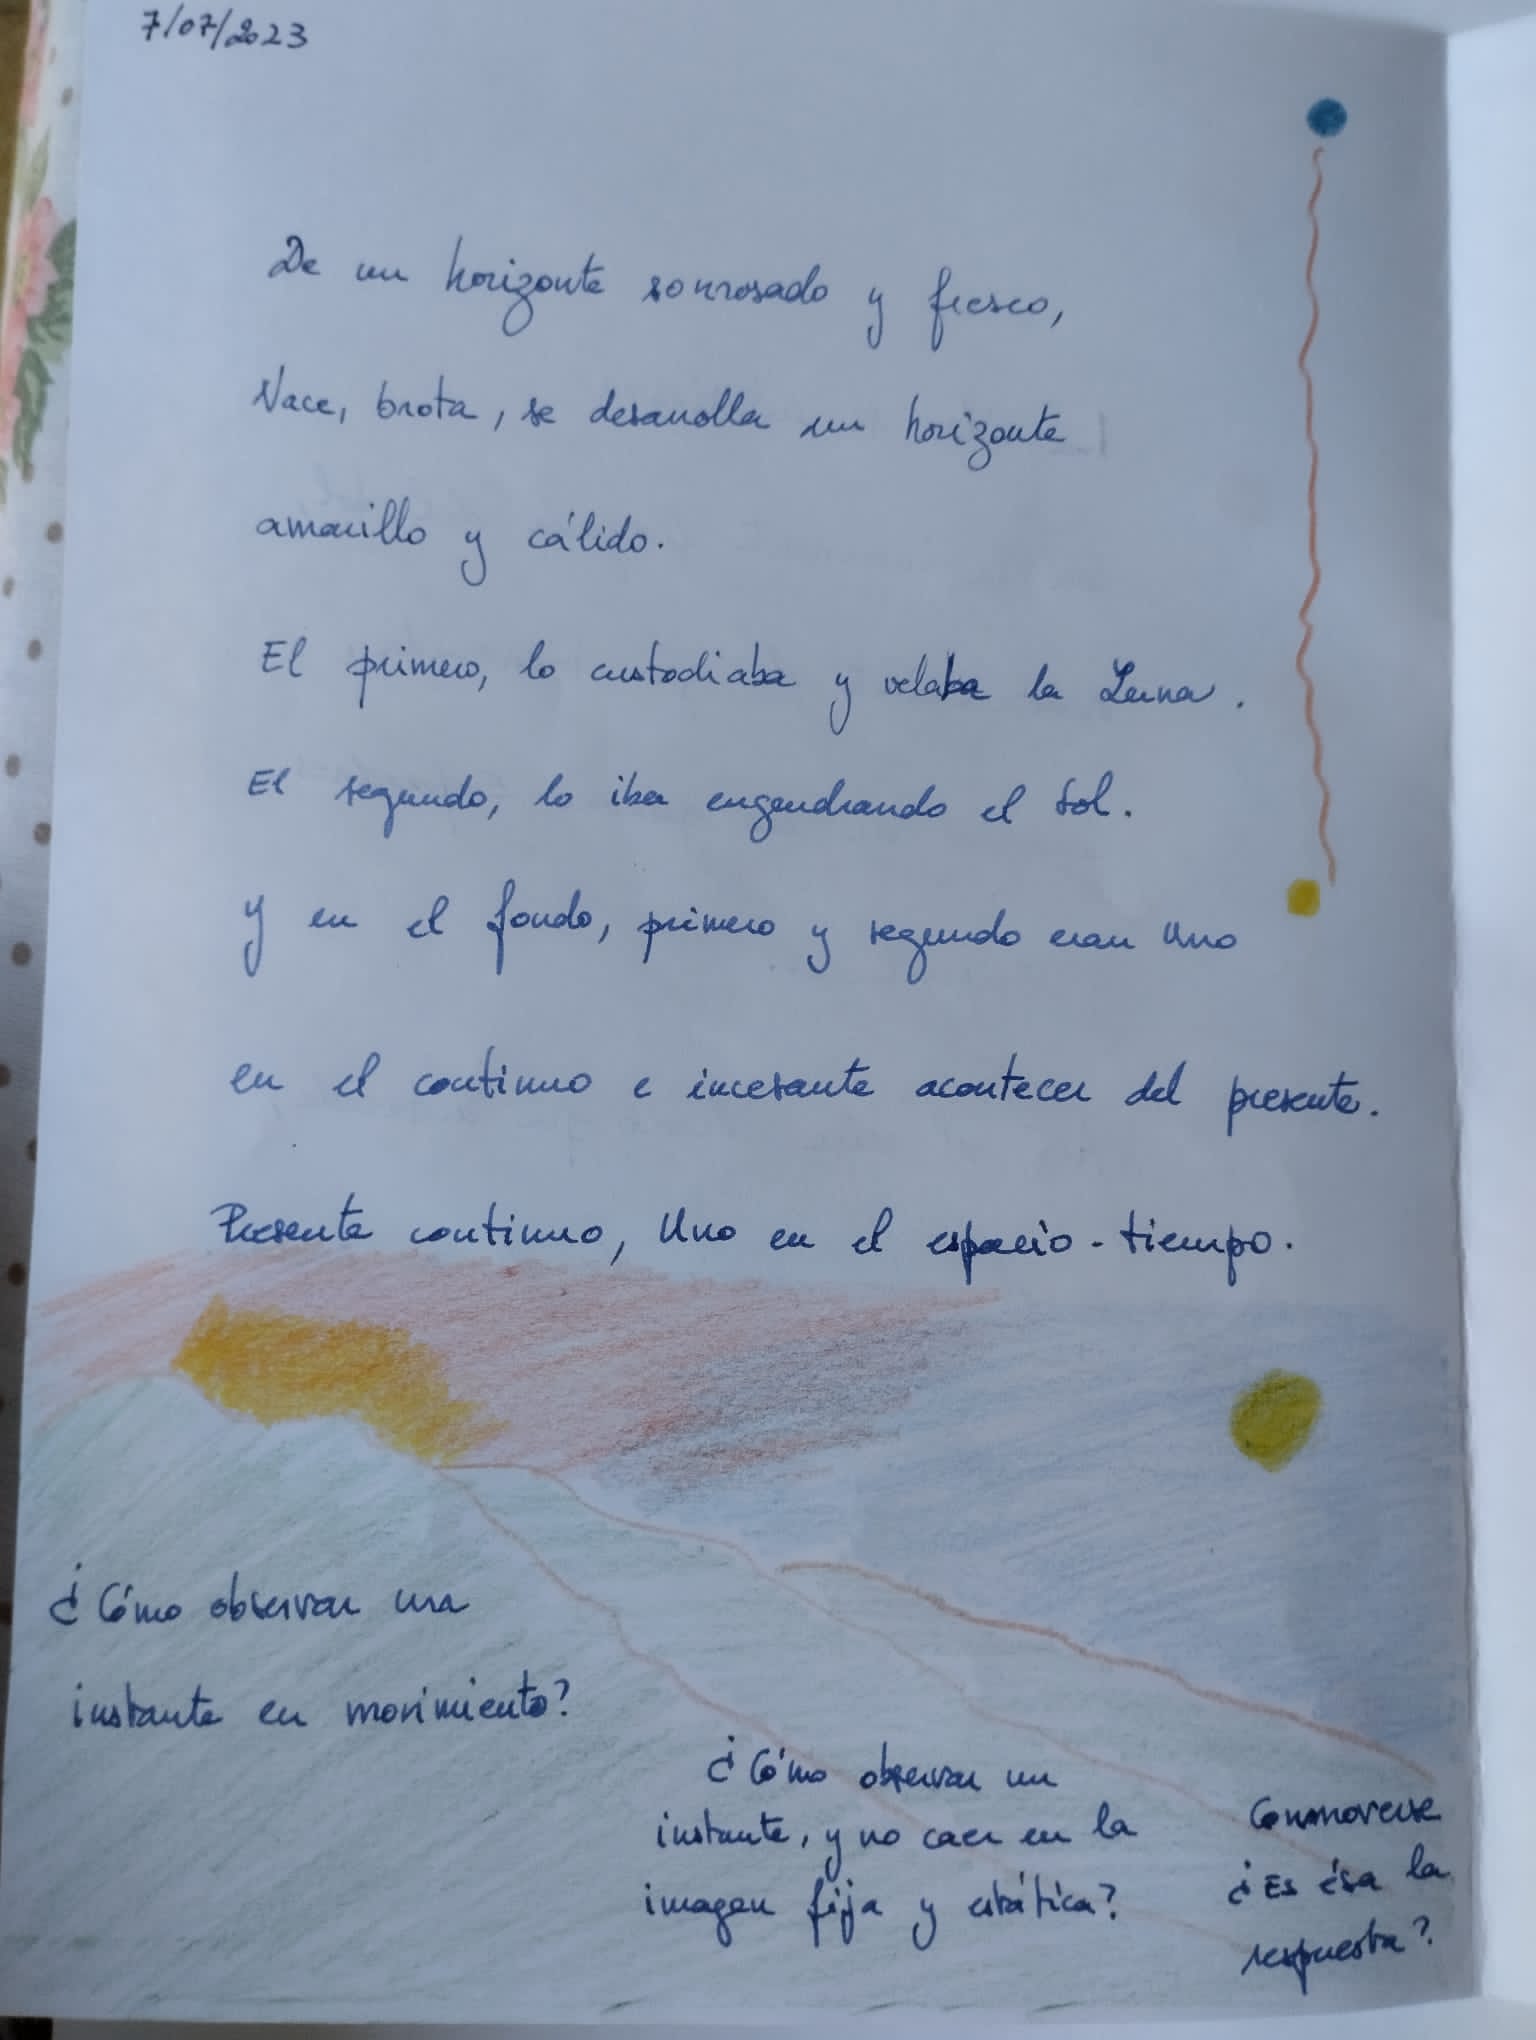 7/07/2023
De un horizonte sonrosado y fresco,
Nace, brota, se desarrolla un horizonte
amarillo y cálido.
El primero, lo custodiaba y velaba la Luna.
El segundo, lo iba engendrando el Sol.
y en el fondo, primero y segundo eran Uno
en el continuo e incesante acontecer del presente.
Presente continuo, Uno en el espacio-tiempo.
¿Cómo observar una
instante en movimiento?
¿Cómo observar un
instante, y no caer en la
imagen fija y estática?
Conmoverse
¿Es ésa la
respuesta?